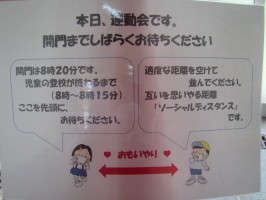 本日、運動会です。
開門までしばらくお待ちください
開門は8時20分です。
児童の登校が終わるまで
(8時～8時15分)
ここを先頭に、
お待ちください。
適度な距離を空けて
並んでください。
互いを思いやる距離
「ソーシャルディスタンス」
です。
♥ おもいやり ♥